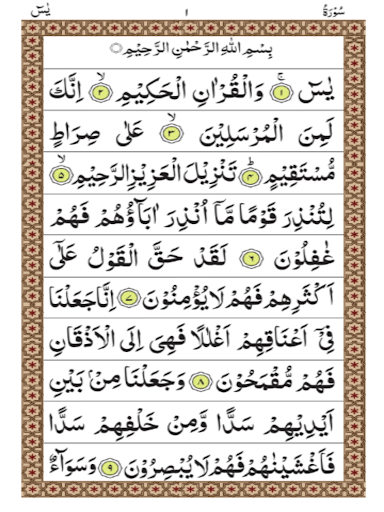 سُوْرَةُ ١ يٰسٓ
بِسْمِ اللهِ الرَّحْمٰنِ الرَّحِيْمِ ○
يٰسٓ ۚ ﴿١﴾ وَالْقُرْاٰنِ الْحَكِيْمِ ۙ ﴿٢﴾ اِنَّكَ
لَمِنَ الْمُرْسَلِيْنَ ۙ ﴿٣﴾ عَلٰى صِرَاطٍ
مُّسْتَقِيْمٍ ؕ ﴿٤﴾ تَنْزِيْلَ الْعَزِيْزِ الرَّحِيْمِ ۙ ﴿٥﴾
لِتُنْذِرَ قَوْمًا مَّاۤ اُنْذِرَ اٰبَآؤُهُمْ فَهُمْ
غٰفِلُوْنَ ﴿٦﴾ لَقَدْ حَقَّ الْقَوْلُ عَلٰۤى
اَكْثَرِهِمْ فَهُمْ لَا يُؤْمِنُوْنَ ﴿٧﴾ اِنَّا جَعَلْنَا
فِيْۤ اَعْنَاقِهِمْ اَغْلٰلًا فَهِيَ اِلَى الْاَذْقَانِ
فَهُمْ مُّقْمَحُوْنَ ﴿٨﴾ وَجَعَلْنَا مِنْۢ بَيْنِ
اَيْدِيْهِمْ سَدًّا وَّمِنْ خَلْفِهِمْ سَدًّا
فَاَغْشَيْنٰهُمْ فَهُمْ لَا يُبْصِرُوْنَ ﴿٩﴾ وَسَوَآءٌ